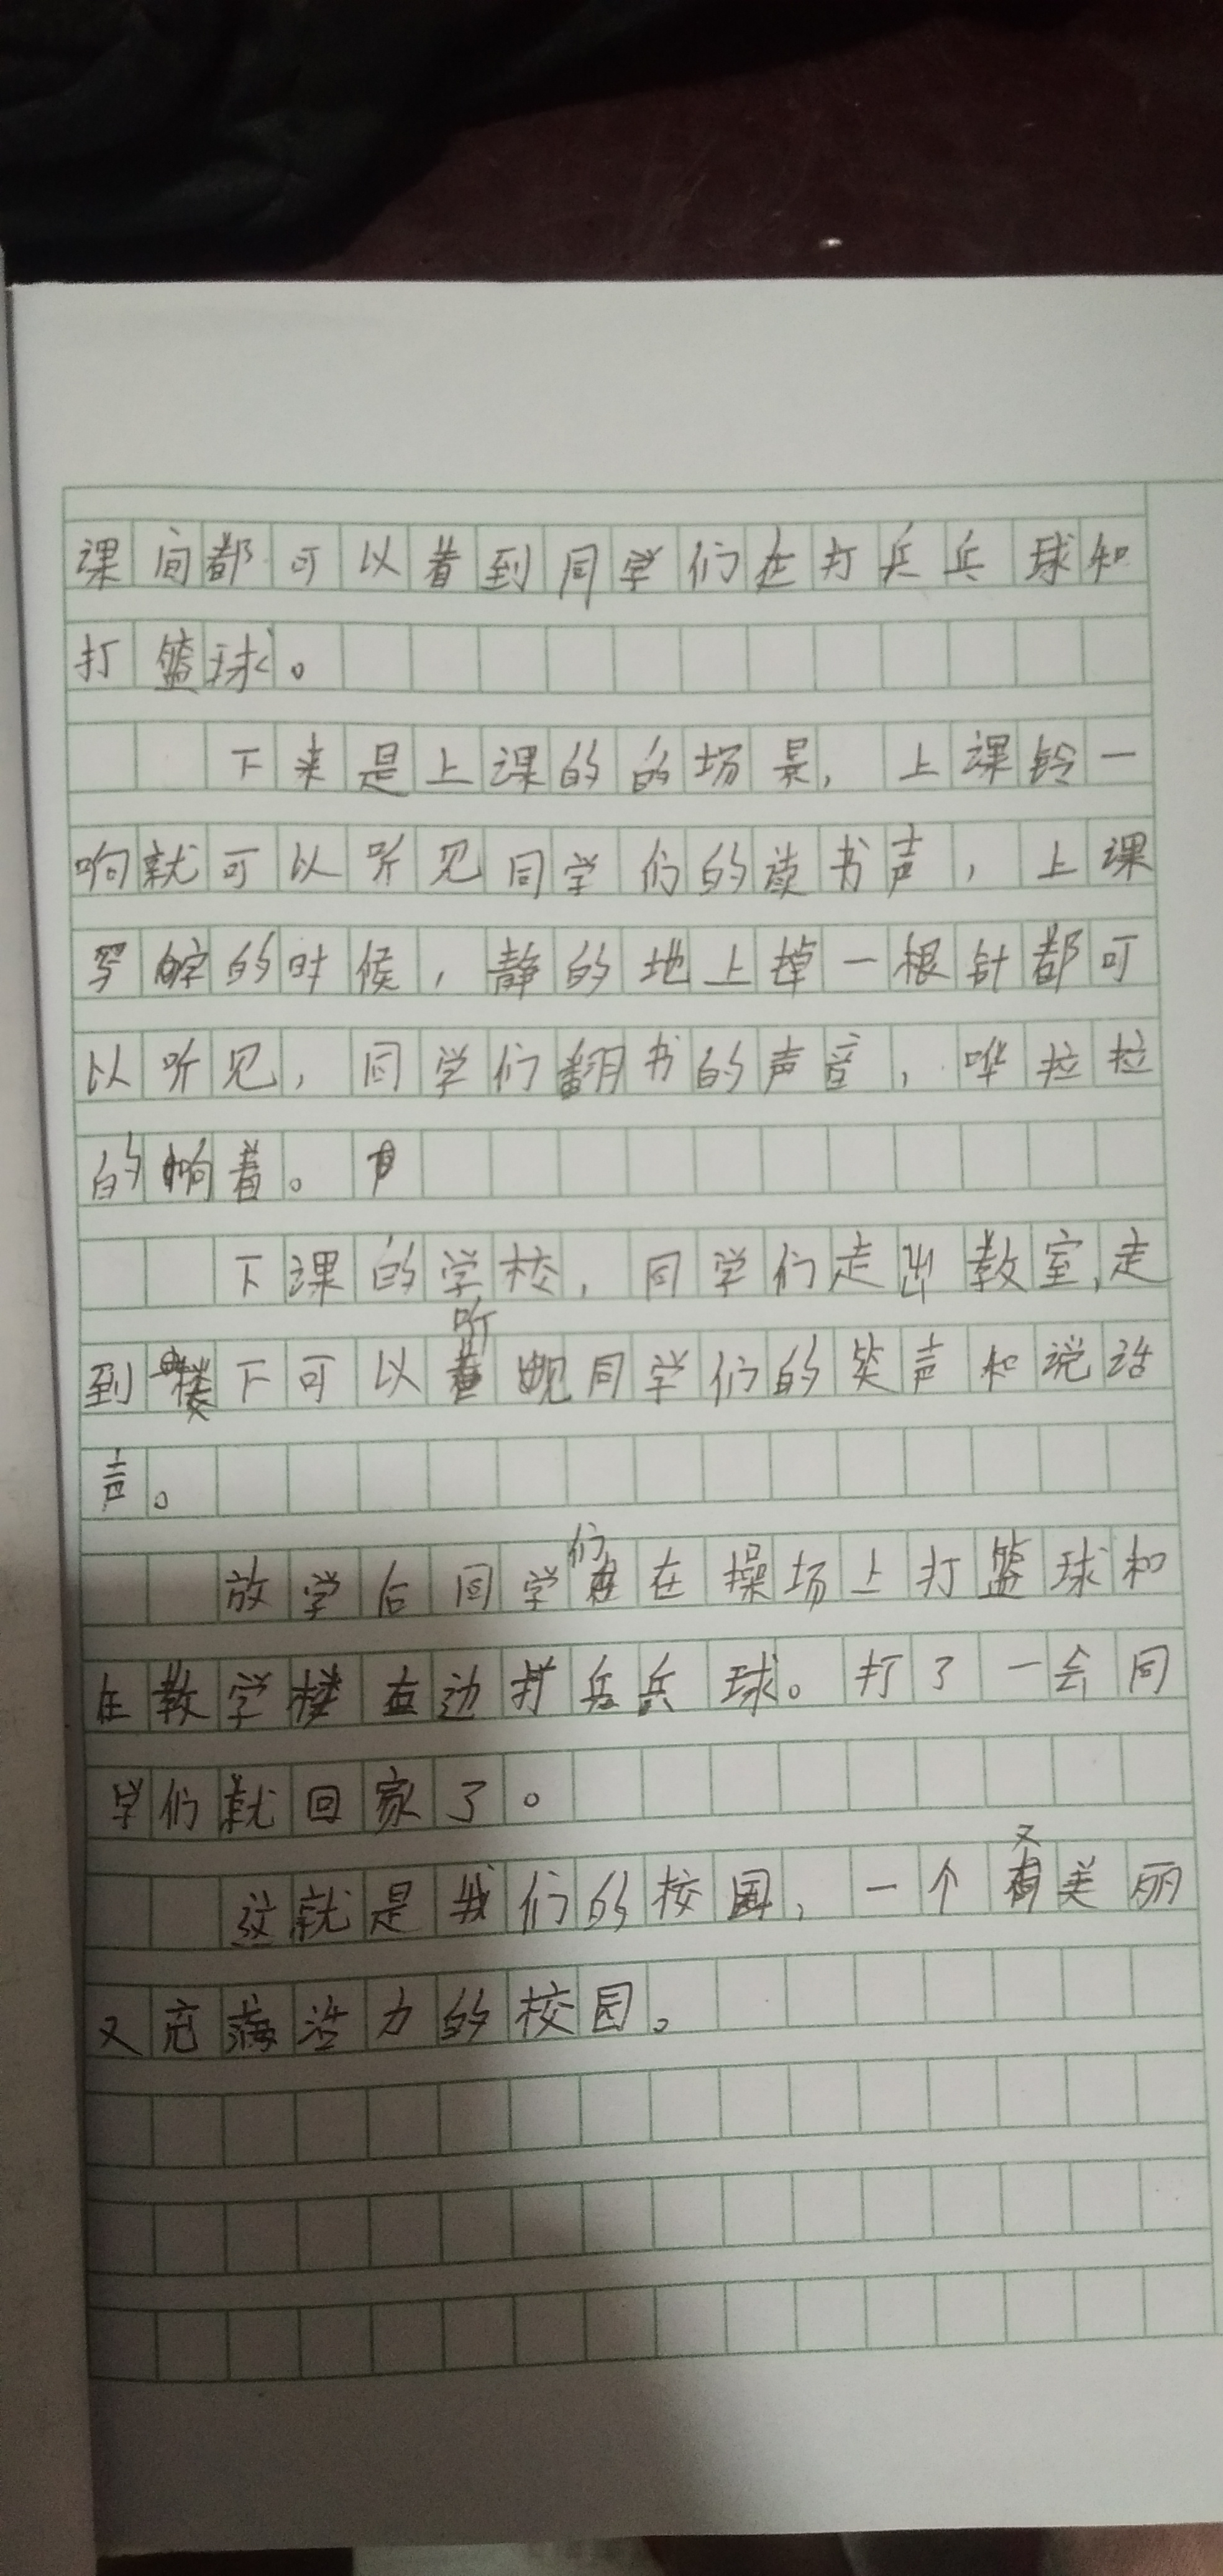 课间都可以看到同学们在打兵兵球和
打篮球。
下来是上课的的场景，上课铃一
响就可以听见同学们的读书声，上课
写字的时候，静的地上掉一根针都可
以听见，同学们翻书的声音，哗拉拉
的响着。
下课的学校，同学们走出教室，走
到楼下可以听见同学们的笑声和说话
声。
放学后同学们在操场上打篮球和
在教学楼左边打兵兵球。打了一会同
学们就回家了。
这就是我们的校园，一个又美丽
又充满活力的校园。